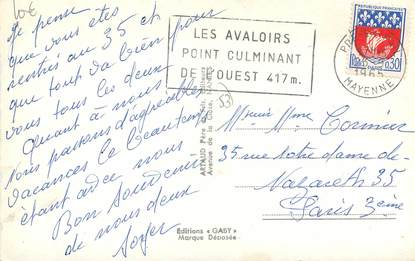 Je pense
que vous êtes
rentrés au 35 et
que tout va bien pour
vous tous les deux
Quant à nous
nous passons d'agréables
vacances le beau temps
étant avec nous
Bon Souvenir
de nous deux
LES AVALOIRS
POINT CULMINANT
DE L'OUEST 417m.
REPUBLIQUE FRANÇAISE
0,30
1965
MAYENNE
53
Éditions « GABY »
Marque Déposée
ARTAUD Père
Avenue de la
35 rue Notre dame de
Nazareth 35
Paris 3ème